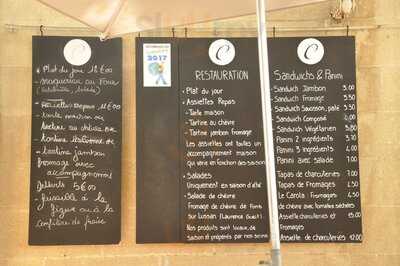 Plat du jour 12 €00
Assiettes Repas 11 €00
tarte maison ou
tartine au chèvre ou
tartine italienne ou
tartine jambon
fromage avec
accompagnement
Desserts 5 €00
fuxaible à la
figue ou à la
confiture de fraise
2017
RESTAURATION
Plat du jour
Assiettes Repas
- Tarte maison
- Tartine au chèvre
- Tartine jambon fromage
Les assiettes ont toutes un
accompagnement maison
qui varie en fonction des saisons
Salades
Uniquement en saison d'été
Salade de chèvre
Fromage de chèvre de Fons
sur Lussan (Laurence Guet)
Nos produits sont locaux, de
saison et préparés par nos
Sandwichs & Panini
Sandwich Jambon 3,00
Sandwich Fromage 3,50
Sandwich Saucisson, paté 3,50
Sandwich Composé
Sandwich Végétarien
Panini 2 ingrédients
Panini 3 ingrédients 4,00
Panini avec salade 7,00
Tapas de charcuteries 7,50
Tapas de Fromages 4,50
Le Carola Fromages 4,50
de chèvre avec tomates séchées
Assiette de charcuteries et 15,00
Fromages
Assiette de charcuteries 12,00